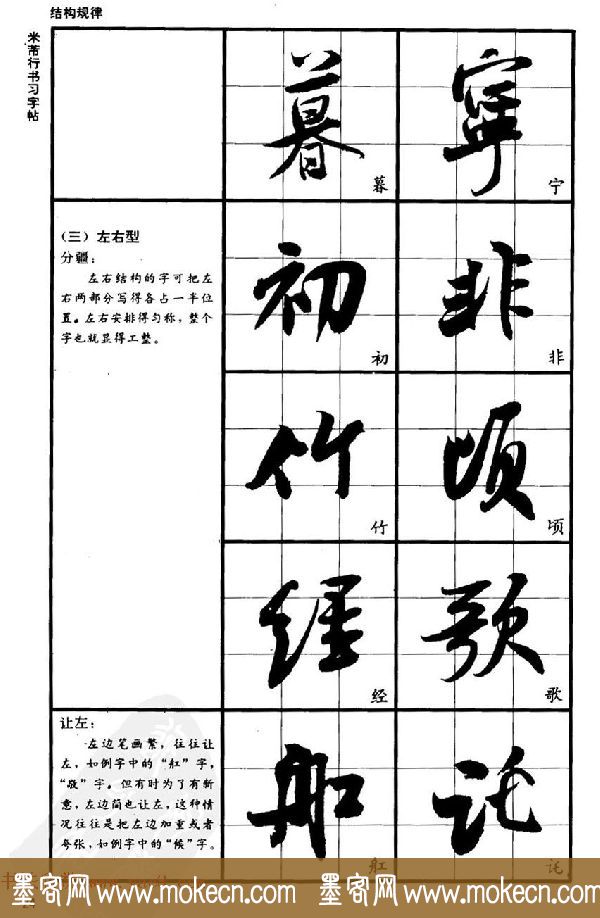 结构规律
米芾行书习字帖
暮
宁
(三)左右型
分疆:
左右结构的字可把左
右两部分写得各占一半位
置。左右安排得匀称,整个
字也就显得工整。
初
非
竹
顷
经
歌
让左:
左边笔画繁,往往让
左,如例字中的“舡”字,
字。但有时为了有新
意,左边简也让左,这种情
况往往是把左边加重或者
夸张,如例字中的“候”字。
舡
讬
墨客网 www.mokecn.com 墨客网 www.mokecn.com